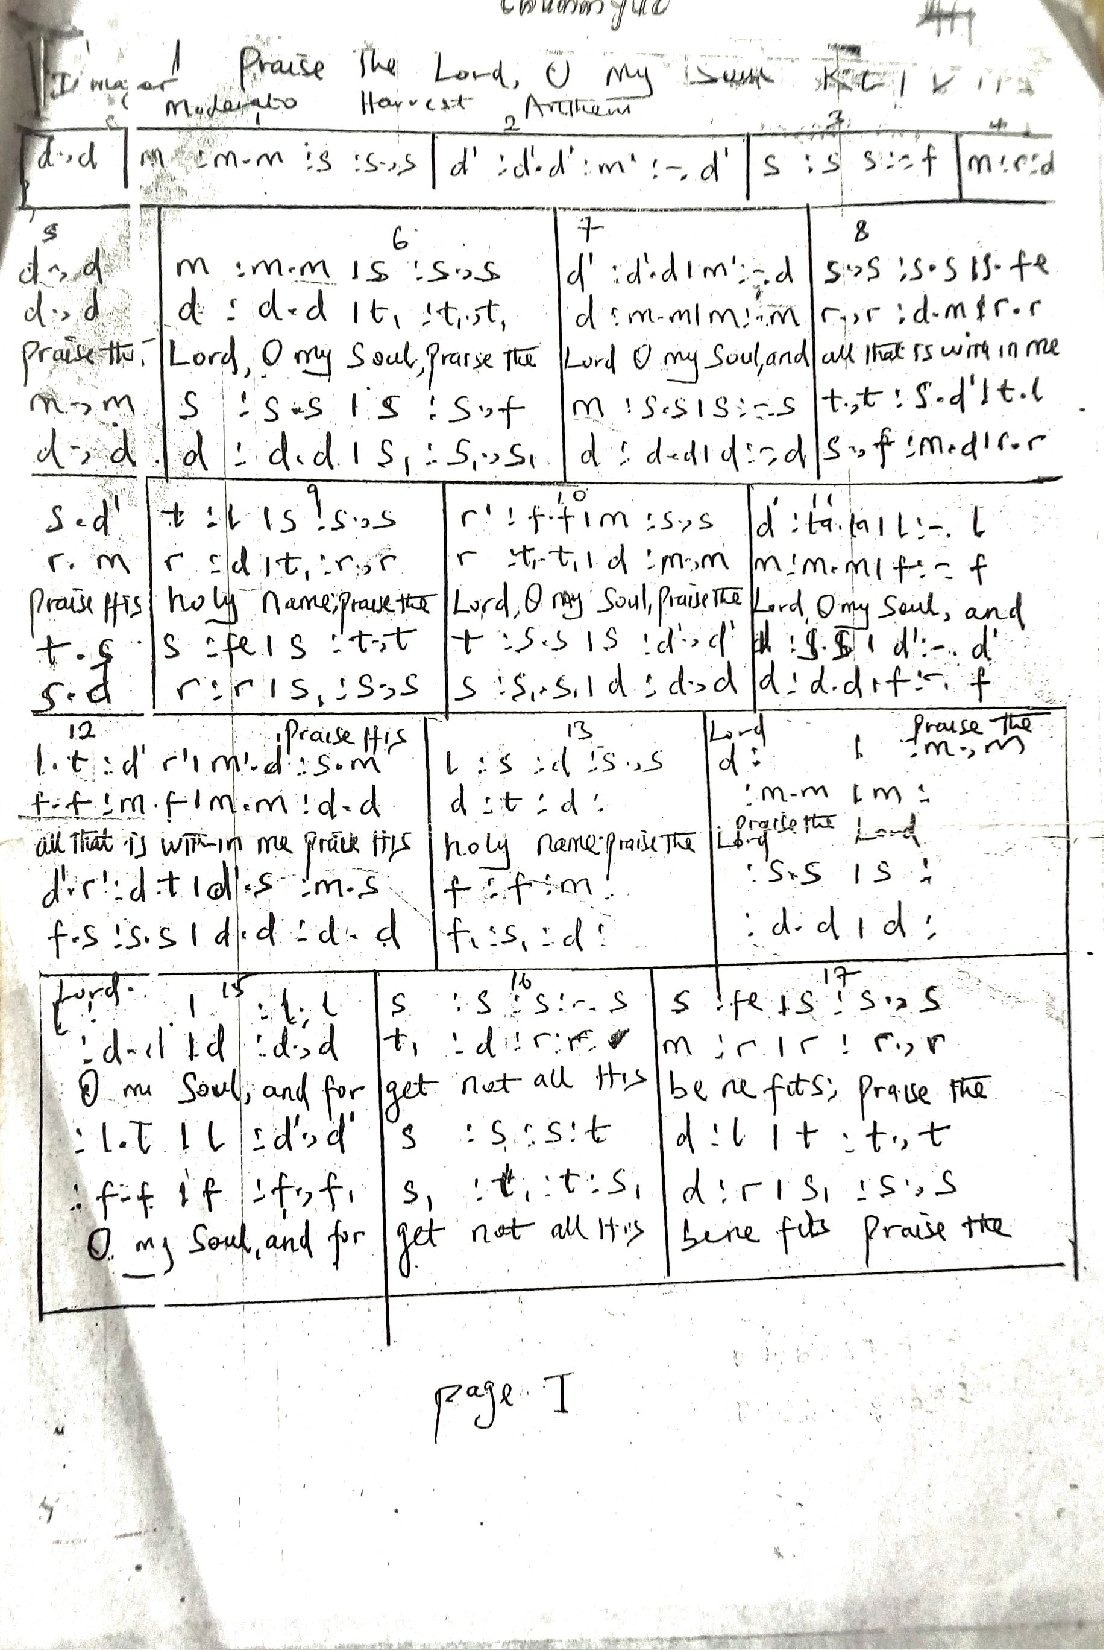 major Praise The Lord, O My
Moderato Harvest Anthem
1 2 3 4
d:,d | m :m.m :s :s.,s | d' :d'.d' :m' :-. d' | s :s s :-: f | m:r:d
5 6 7 8
d., d | m :m.m | s :s.,s | d' :d'.d | m' :-. d | s.,s :s.s | s. fe
d., d | d : d.d | t, :t,.,t, | d :m.m | m :-. m | r.,r :d.m | r.r
praise the | Lord, O my Soul, praise the | Lord O my Soul, and | all that is with in me
m., m | s : s.s | s : s.,f | m :s.s | s :-. s | t.,t : s.d' | t.l
d., d | d : d.d | s, : s,.,s, | d : d.d | d :-. d | s., f :m.d | r.r
9 10 11
s.d' | t :l | s :s.,s | r' : f.f | m :s.,s | d' :ta.ta | l :-. l
r. m | r :d | t, :r.,r | r :t,.t, | d :m.,m | m :m.m | f :- f
Praise His | holy name; praise the | Lord, O my Soul, praise the | Lord, O my Soul, and
t.s | s :fe | s : t.,t | t :s.s | s :d'.,d' | :s.s | d' :-. d'
s.d | r :r | s, :s.,s | s :s,.s, | d : d.,d | d : d.d | f :-. f
12 praise His 13 Lord praise the
l.t :d' r' | m'.d :s.m | l :s :d :s.,s | d : | :m.,m
f.f :m.f | m.m :d.d | d :t :d : | :m.m | m :
all that is with-in me praise His | holy name praise the | Lord praise the Lord
d'.r' :d.t | d'.s :m.s | f :f :m : | :s.s | s :
f.s :s.s | d.d :d. d | f, :s, :d : | : d.d | d :
Lord. 15 16 17
: | :l., l | s :s :s :-. s | s :fe | s :s.,s
:d.d | d :d.,d | t, :d :r :r. | m :r | r : r.,r
O my Soul, and for | get not all His | be ne fits; praise the
: l.l | l :d'.,d' | s :s :s :t | d :l | t : t., t
: f.f | f :f., f, | s, :t, :t :s, | d :r | s, :s.,s
O my Soul, and for | get not all His | bene fits praise the
page I